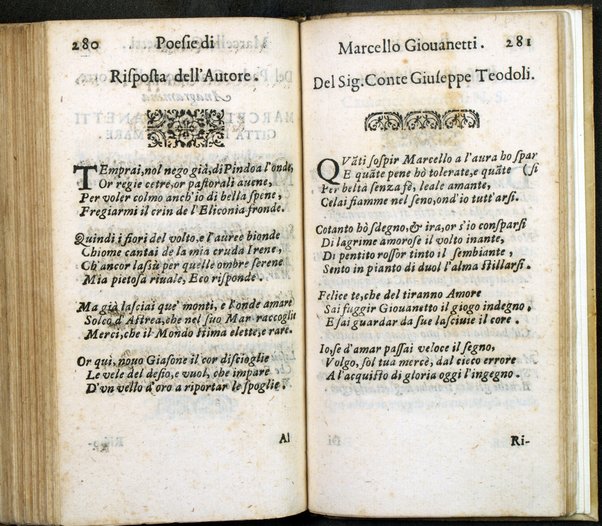 280 Poesie di
Risposta dell'Autore.
TEmprai, nol nego già, di Pindo a l'onde,
Or regie cetre, or pastorali auene,
Per voler colmo anch'io di bella spene,
Fregiarmi il crin de l'Eliconia fronde.
Quindi i fiori del volto, e l'auree bionde
Chiome cantai de la mia cruda Irene,
Ch'ancor lasiù per quelle ombre serene
Mia pietosa riuale, Eco risponde.
Ma già lasciai que' monti, e l'onde amare
Solco d'Astrea, che nel suo Mar raccoglie
Merci, che il Mondo stima elette, e rare.
Or qui, nouo Giasone il cor discioglie
Le vele del desio, e vuol, che impare
D'vn vello d'oro a riportar le spoglie.
Al
Marcello Giouanetti. 281
Del Sig. Conte Giuseppe Teodoli.
QVãti sospir Marcello a l'aura hò spar
E quãte pene hò tolerate, e quãte (si
Per beltà senza fè, leale amante,
Celai fiamme nel seno, ond'io tutt'arsi.
Cotanto hò sdegno, & ira, or s'io consparsi
Di lagrime amorose il volto inante,
Di pentito rossor tinto il sembiante,
Sento in pianto di duol l'alma stillarsi.
Felice te, che del tiranno Amore
Sai fuggir Giouanetto il giogo indegno,
E sai guardar da sue lasciuie il core.
Io, se d'amar passai veloce il segno,
Volgo, sol tua mercè, dal cieco errore
A l'acquisto di gloria oggi l'ingegno.
Ri-